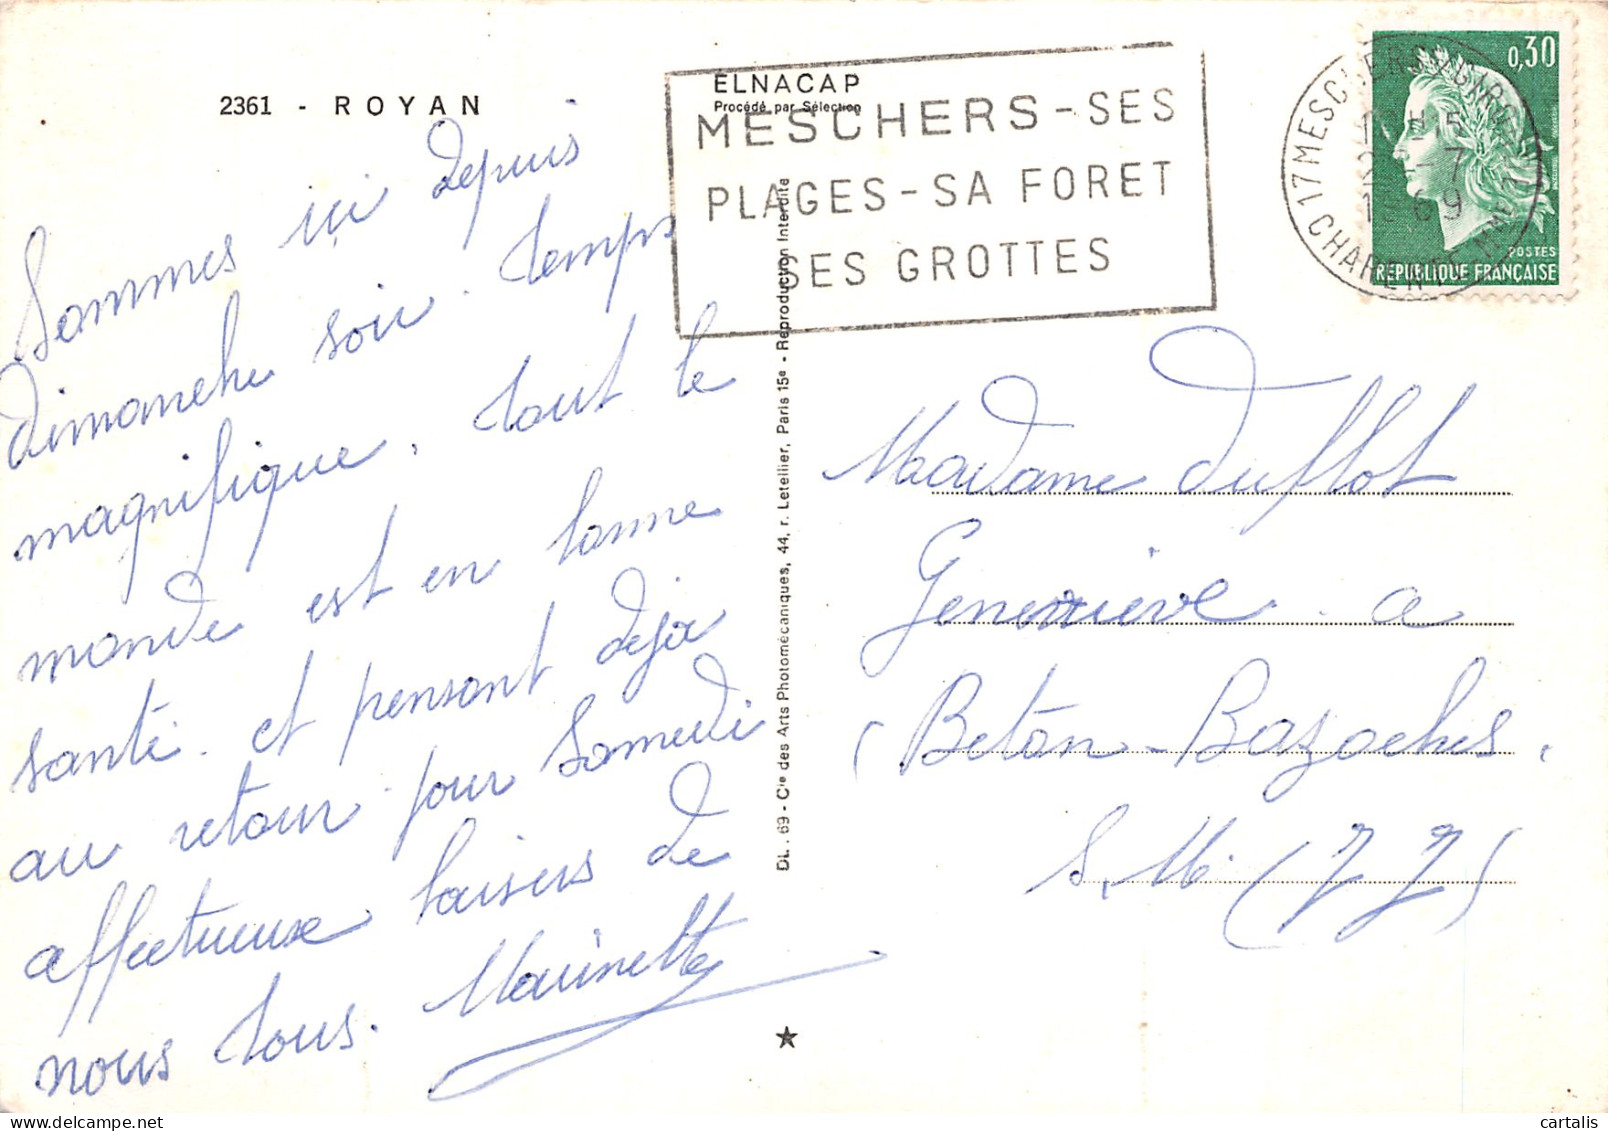 2361 - ROYAN
ÉLNACAP
Procédé par Sélection
MESCHERS - SES
PLAGES - SA FORET
SES GROTTES
0,30
POSTES
REPUBLIQUE FRANÇAISE
17 MESCHERS
CHARENTE
1969
Sommes ici depuis
dimanche soir. temps
magnifique, tout le
monde est en bonne
santé. et pensant déja
au retour pour Samedi
affectueux baisers de
nous tous. Marinette
DL. 69 - Cie des Arts Photomécaniques, 44, r. Letellier, Paris 15e - Reproduction Interdite
Madame Duflot
Geneviève. a
(Beton-Bazoches.
S.M. (77)
★
cartalis
delcampe.net